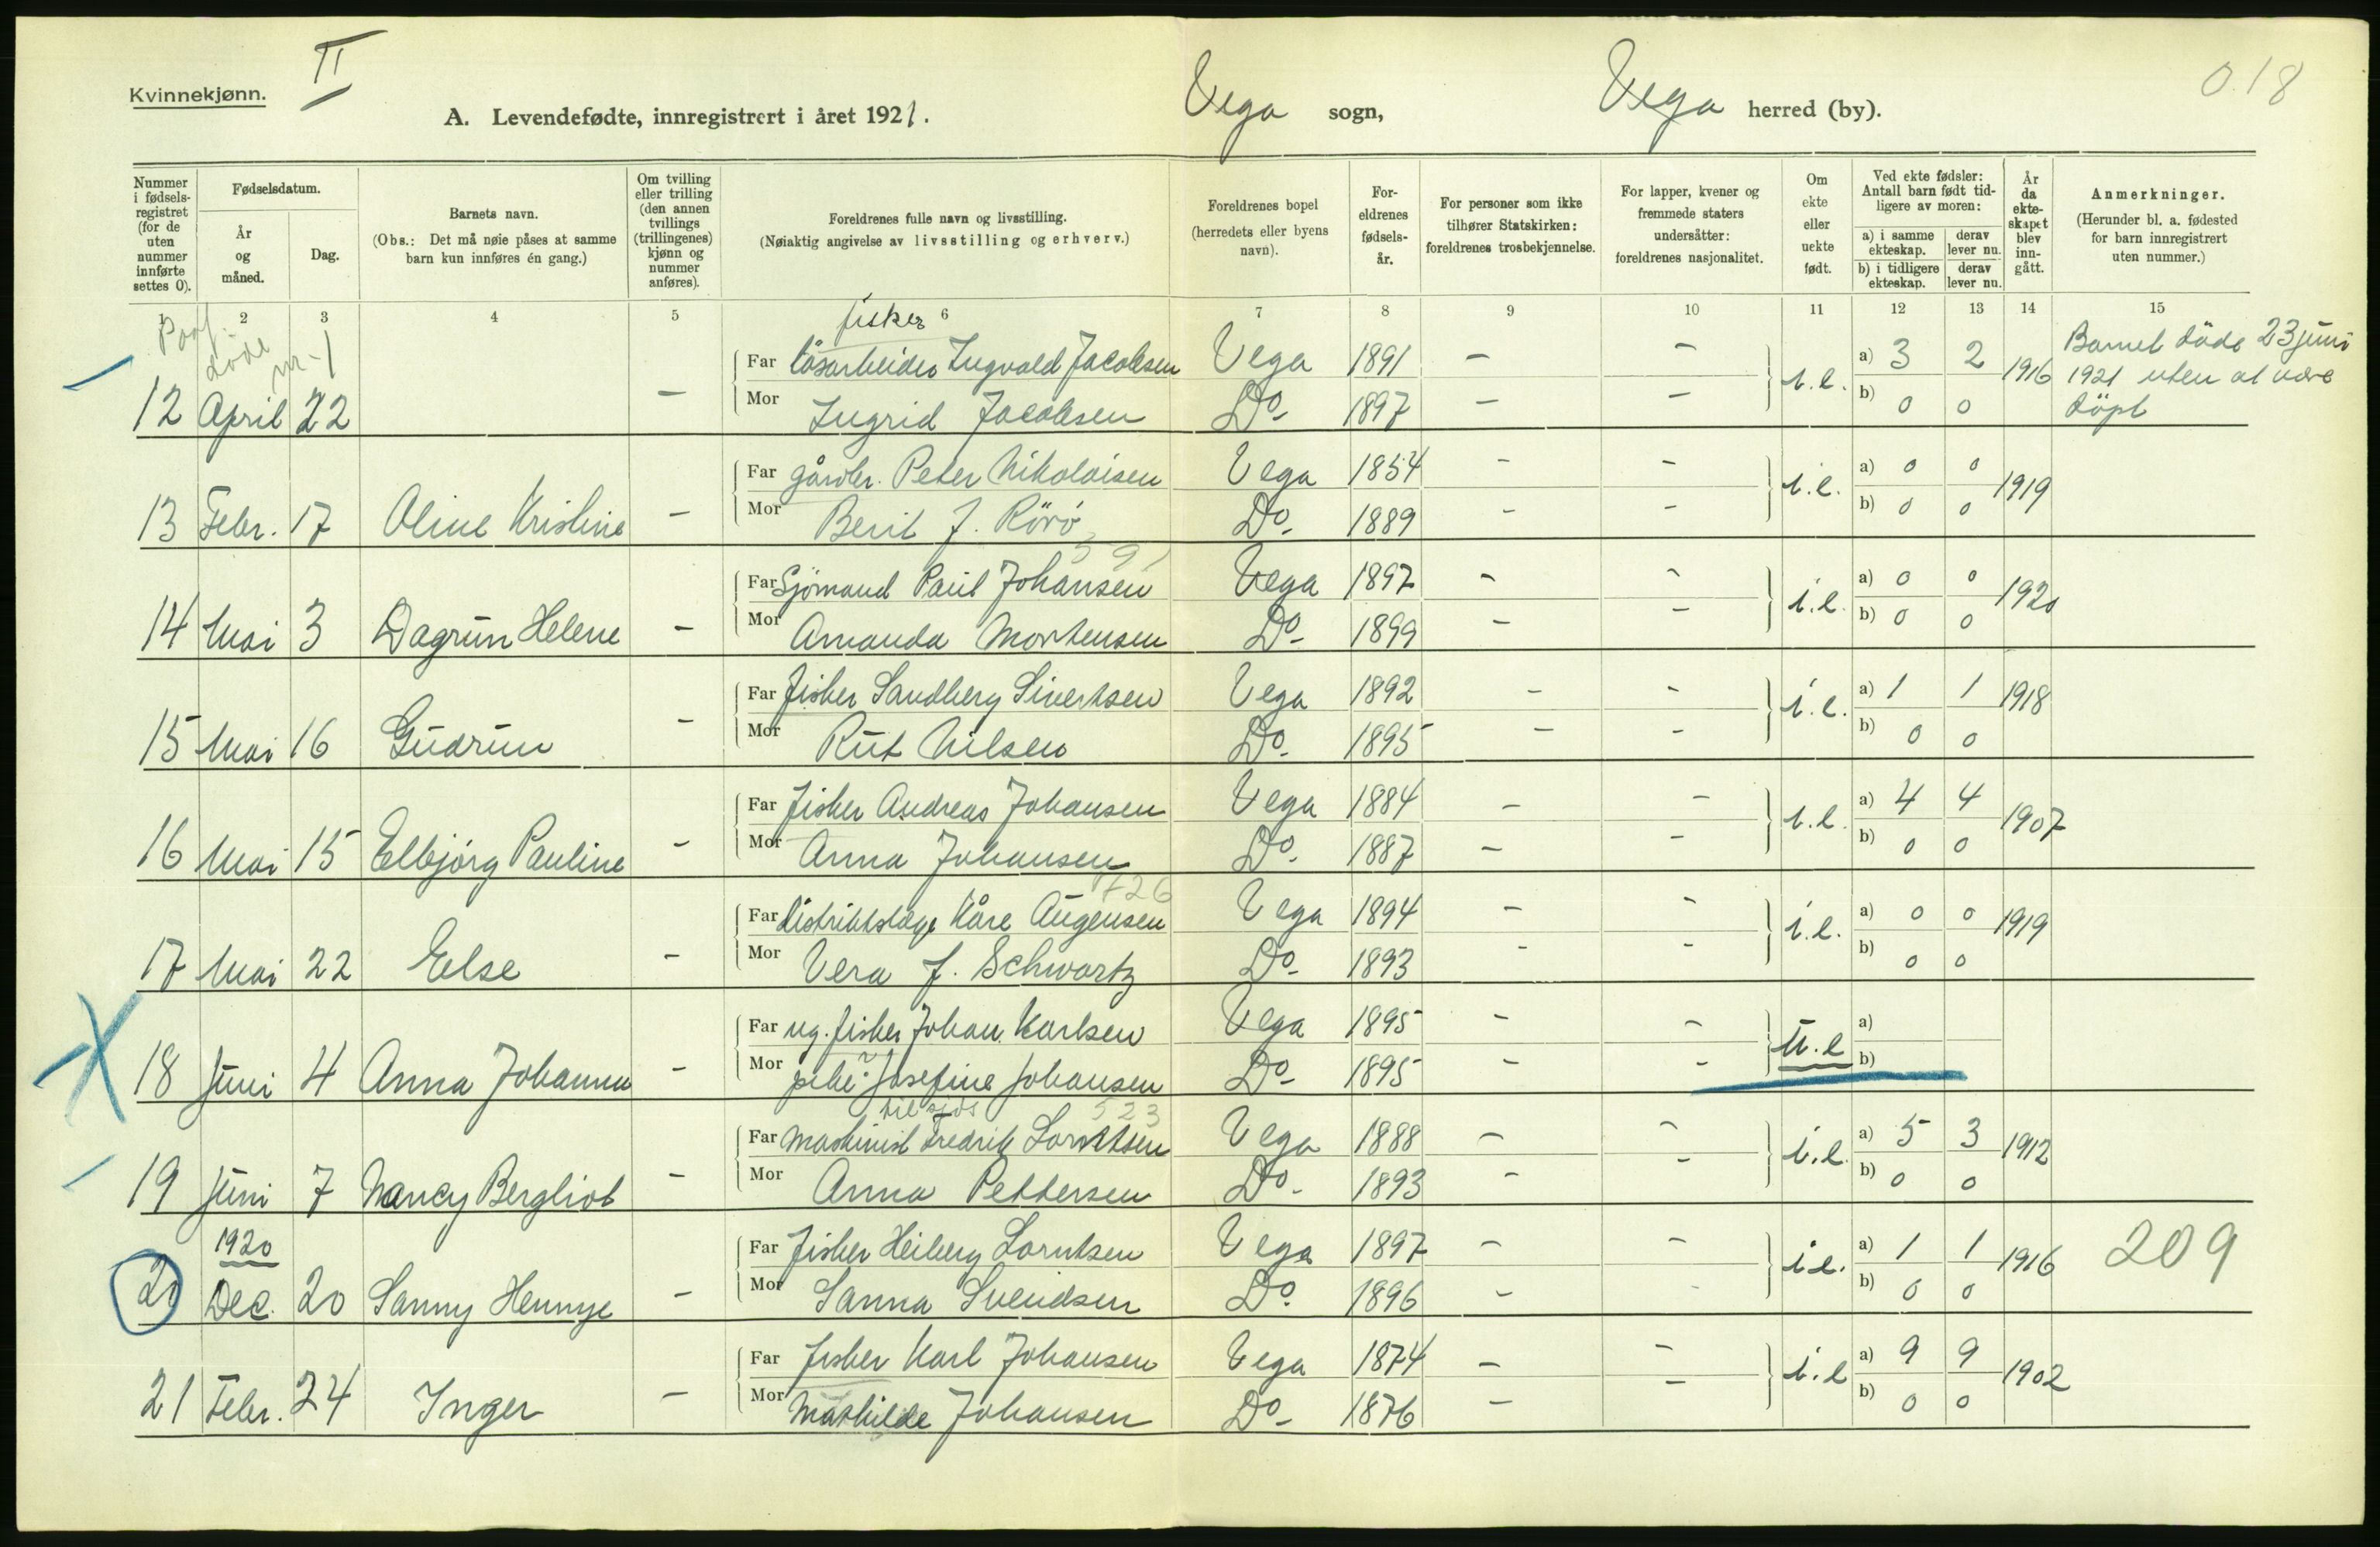 Kvinnekjønn.
II
A. Levendefødte, innregistrert i året 1921.
Vega sogn,
Vega herred (by).
0.18
Nummer i fødsels-registret (for de uten nummer innførte settes 0).
Fødselsdatum.
År og måned.
Dag.
Barnets navn.
(Obs.: Det må nøie påses at samme barn kun innføres én gang.)
Om tvilling eller trilling (den annen tvillings (trillingenes) kjønn og nummer anføres).
Foreldrenes fulle navn og livsstilling.
(Nøiaktig angivelse av livsstilling og erhverv.)
Foreldrenes bopel (herredets eller byens navn).
For-eldrenes fødsels-år.
For personer som ikke tilhører Statskirken: foreldrenes trosbekjennelse.
For lapper, kvener og fremmede staters undersåtter: foreldrenes nasjonalitet.
Om ekte eller uekte født.
Ved ekte fødsler: Antall barn født tid-ligere av moren:
a) i samme ekteskap.
derav lever nu.
b) i tidligere ekteskap.
derav lever nu.
År da ekte-skapet blev inn-gått.
Anmerkninger.
(Herunder bl. a. fødested for barn innregistrert uten nummer.)
1 2 3 4 5 6 7 8 9 10 11 12 13 14 15
døde nr. 1
fisker
Far løsarbeider Ingvald Jacobsen Vega 1891 - - a) 3 2
12 April 22 - Mor Ingrid Jacobsen Do- 1897 - - i.e. b) 0 0 1916
Barnet døde 23 juni
1921 uten at være
døpt
Far gårdbr. Peter Nikolaisen Vega 1854 - - a) 0 0
13 Febr. 17 Oline Kristine - Mor Berit J. Rörö Do- 1889 - - i.e. b) 0 0 1919
591
Far Sjömand Paul Johansen Vega 1897 - - a) 0 0
14 Mai 3 Dagrun Helene - Mor Amanda Mortensen Do- 1899 - - i.e. b) 0 0 1920
Far fisker Sandberg Sivertsen Vega 1892 - - a) 1 1
15 Mai 16 Gudrun - Mor Rut Nilsen Do- 1895 - - i.e. b) 0 0 1918
Far fisker Andreas Johansen Vega 1884 - - a) 4 4
16 Mai 15 Elbjörg Pauline - Mor Anna Johansen Do- 1887 - - i.e. b) 0 0 1907
726
Far Distriktslæge Kåre Augensen Vega 1894 - - a) 0 0
17 Mai 22 Else - Mor Vera f. Schwartz Do- 1893 - - i.e. b) 0 0 1919
Far ug. fisker Johan Karlsen Vega 1895 - - a)
18 Juni 4 Anna Johanna - Mor pike Josefine Johansen Do- 1895 - - u.e b)
til sjøs 523
Far maskinist Fredrik Lorntsen Vega 1888 - - a) 5 3
19 Juni 7 Nancy Bergliot - Mor Anna Pettersen Do- 1893 - - i.e. b) 0 0 1912
1920
Far fisker Heiberg Lorntsen Vega 1897 - - a) 1 1
20 Dec. 20 Sanny Hennye - Mor Sanna Svendsen Do. 1896 - - i.e. b) 0 0 1916
209
Far fisker Karl Johansen Vega 1874 - - a) 9 9
21 Febr. 24 Inger - Mor Mathilde Johansen Do- 1876 - - i.e b) 0 0 1902